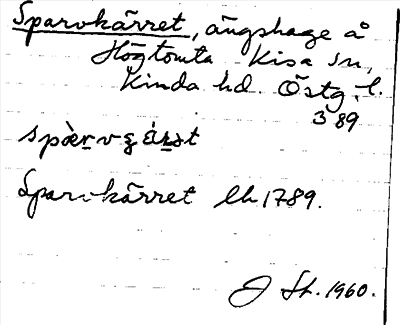 Sparvkärret, ängshage å
Högtomta Kisa sn,
Kinda hd. Östg. l.
3 89
Sparvkärret lh 1789.
J Sh. 1960.